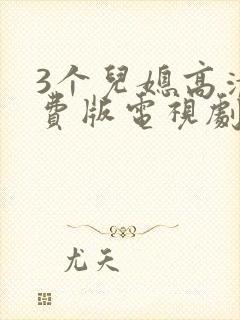 3个兒媳高
費版電視劇
尤天